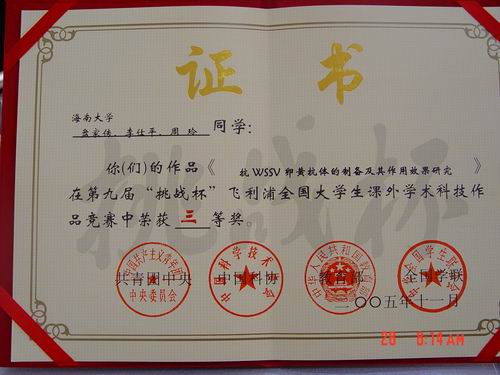 证 书
海南大学
李仕平、周玲 同学:
你(们)的作品《 抗WSSV卵黄抗体的制备及其作用效果研究 》
在第九届“挑战杯”飞利浦全国大学生课外学术科技作
品竞赛中荣获 三 等奖。
挑战杯
共青团中央 中国科协 教育部 全国学联
中国共产主义青年团 中央委员会
中国科学技术协会
中华人民共和国教育部
二〇〇五年十一月
8:14AM